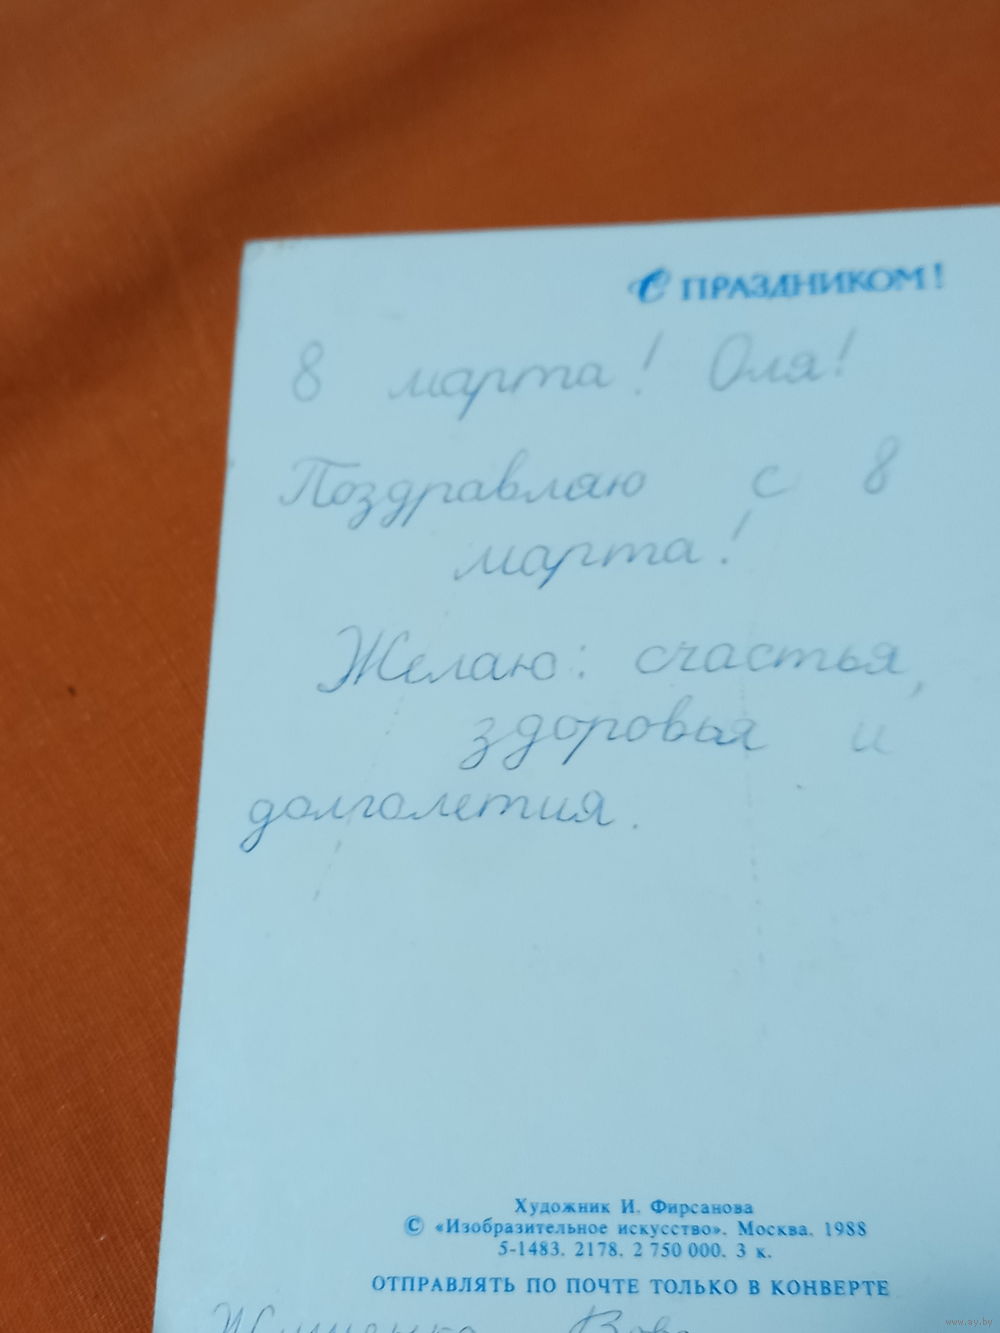 С ПРАЗДНИКОМ!
8 марта! Оля!
Поздравляю с 8
марта!
Желаю: счастья,
здоровья и
долголетия.
Художник И. Фирсанова
© «Изобразительное искусство». Москва. 1988
5-1483. 2178. 2 750 000. 3 к.
ОТПРАВЛЯТЬ ПО ПОЧТЕ ТОЛЬКО В КОНВЕРТЕ
www.ay.by